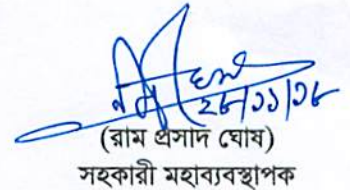 ২৮/১১/১৮
(রাম প্রসাদ ঘোষ)
সহকারী মহাব্যবস্থাপক